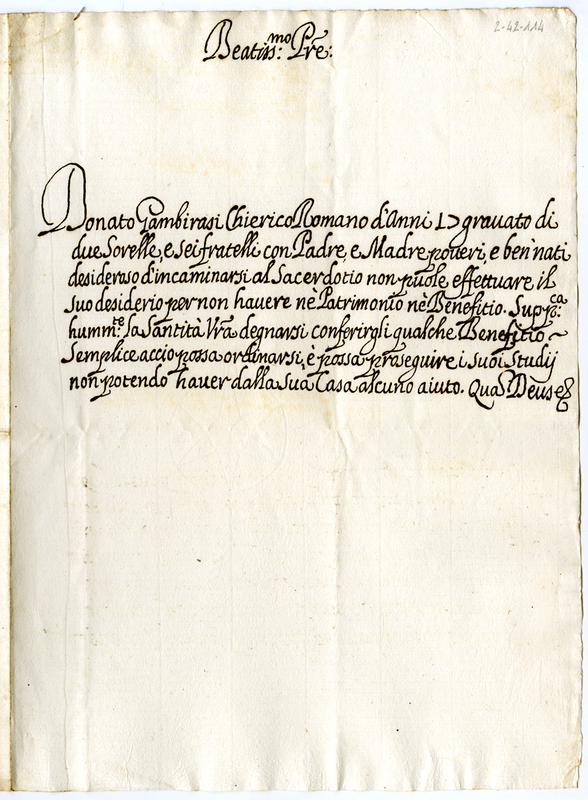 2-42-114
Beatiss.mo Pre:
Donato Gambirasi Chierico Romano d'Anni 17 gravato di
due Sorelle, e Sei fratelli con Padre, e Madre poveri, e ben nati
desideroso d'incaminarsi al Sacerdotio non puole effettuare il
suo desiderio per non havere nè Patrimonio nè Benefitio. Supp.ca
humm.te la Santità Vra degnarsi conferirgli qualche Benefitio ~
Semplice accio possa ordinarsi, è possa proseguire i suoi Studij
non potendo haver dalla Sua Casa alcuno aiuto. Quas Deus &